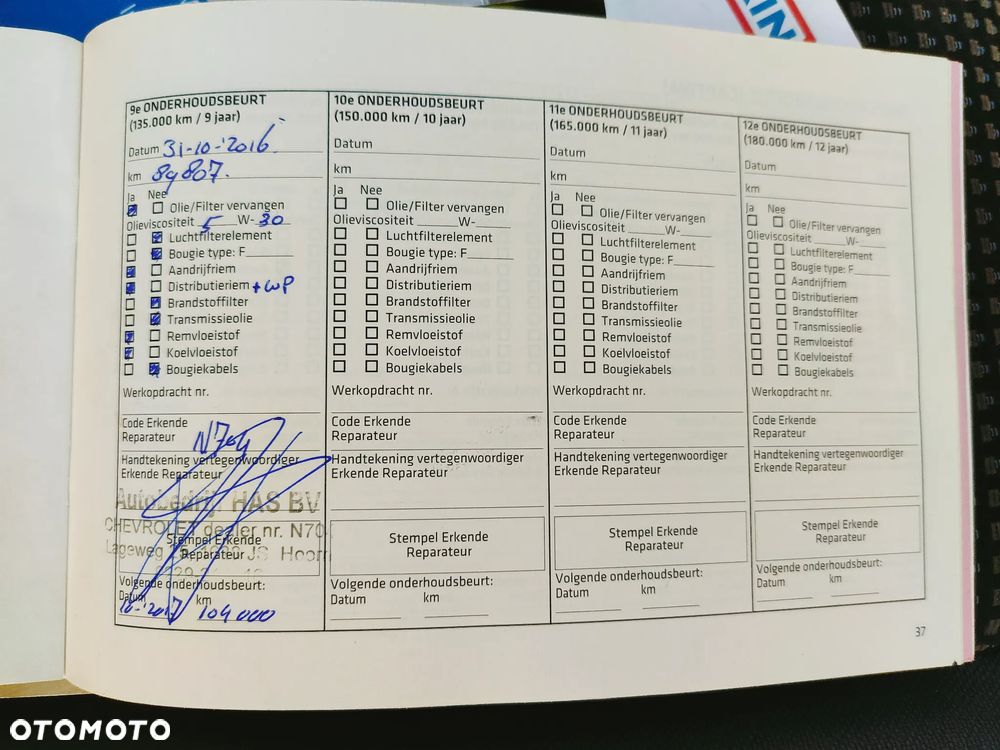 9e ONDERHOUDSBEURT
(135.000 km / 9 jaar)
Datum 31-10-'2016.
km 89807.
Ja Nee
Olie/Filter vervangen
Olieviscositeit 5 W- 30
Luchtfilterelement
Bougie type: F
Aandrijfriem
Distributieriem + WP
Brandstoffilter
Transmissieolie
Remvloeistof
Koelvloeistof
Bougiekabels
Werkopdracht nr.
Code Erkende
Reparateur N704
Handtekening vertegenwoordiger
Erkende Reparateur
Autobedrijf HAS BV
CHEVROLET dealer nr. N70
Stempel Erkende
Lageweg JS Hoorn
Reparateur
Volgende onderhoudsbeurt:
Datum km
10-'2017 104000
10e ONDERHOUDSBEURT
(150.000 km / 10 jaar)
Datum
km
Ja Nee
Olie/Filter vervangen
Olieviscositeit W-
Luchtfilterelement
Bougie type: F
Aandrijfriem
Distributieriem
Brandstoffilter
Transmissieolie
Remvloeistof
Koelvloeistof
Bougiekabels
Werkopdracht nr.
Code Erkende
Reparateur
Handtekening vertegenwoordiger
Erkende Reparateur
Stempel Erkende
Reparateur
Volgende onderhoudsbeurt:
Datum km
11e ONDERHOUDSBEURT
(165.000 km / 11 jaar)
Datum
km
Ja Nee
Olie/Filter vervangen
Olieviscositeit W-
Luchtfilterelement
Bougie type: F
Aandrijfriem
Distributieriem
Brandstoffilter
Transmissieolie
Remvloeistof
Koelvloeistof
Bougiekabels
Werkopdracht nr.
Code Erkende
Reparateur
Handtekening vertegenwoordiger
Erkende Reparateur
Stempel Erkende
Reparateur
Volgende onderhoudsbeurt:
Datum km
12e ONDERHOUDSBEURT
(180.000 km / 12 jaar)
Datum
km
Ja Nee
Olie/Filter vervangen
Olieviscositeit W-
Luchtfilterelement
Bougie type: F
Aandrijfriem
Distributieriem
Brandstoffilter
Transmissieolie
Remvloeistof
Koelvloeistof
Bougiekabels
Werkopdracht nr.
Code Erkende
Reparateur
Handtekening vertegenwoordiger
Erkende Reparateur
Stempel Erkende
Reparateur
Volgende onderhoudsbeurt:
Datum km
37
OTOMOTO